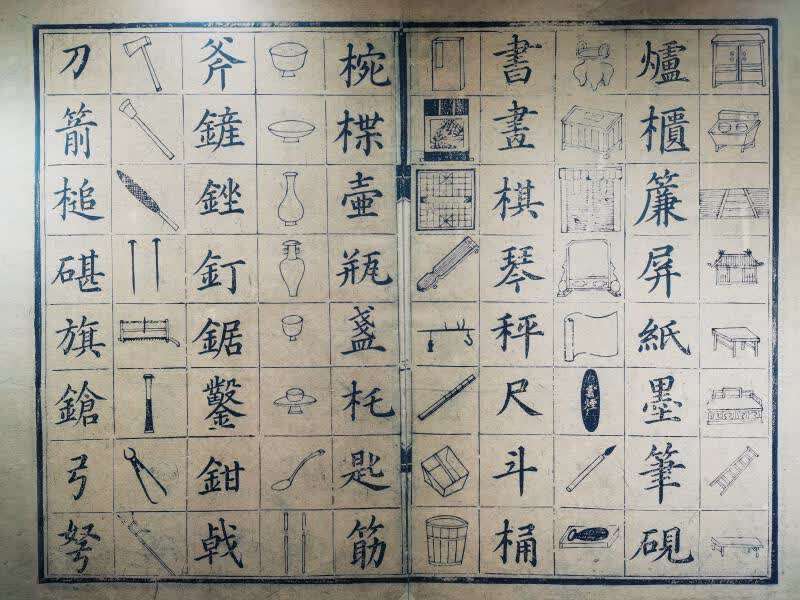 爐櫃簾屏紙墨筆硯
書畫棋琴秤尺斗桶
椀楪壺瓶盞杔匙筯
斧鏟銼釘鋸鑿鉗戟
刀箭槌碪旗鎗弓弩